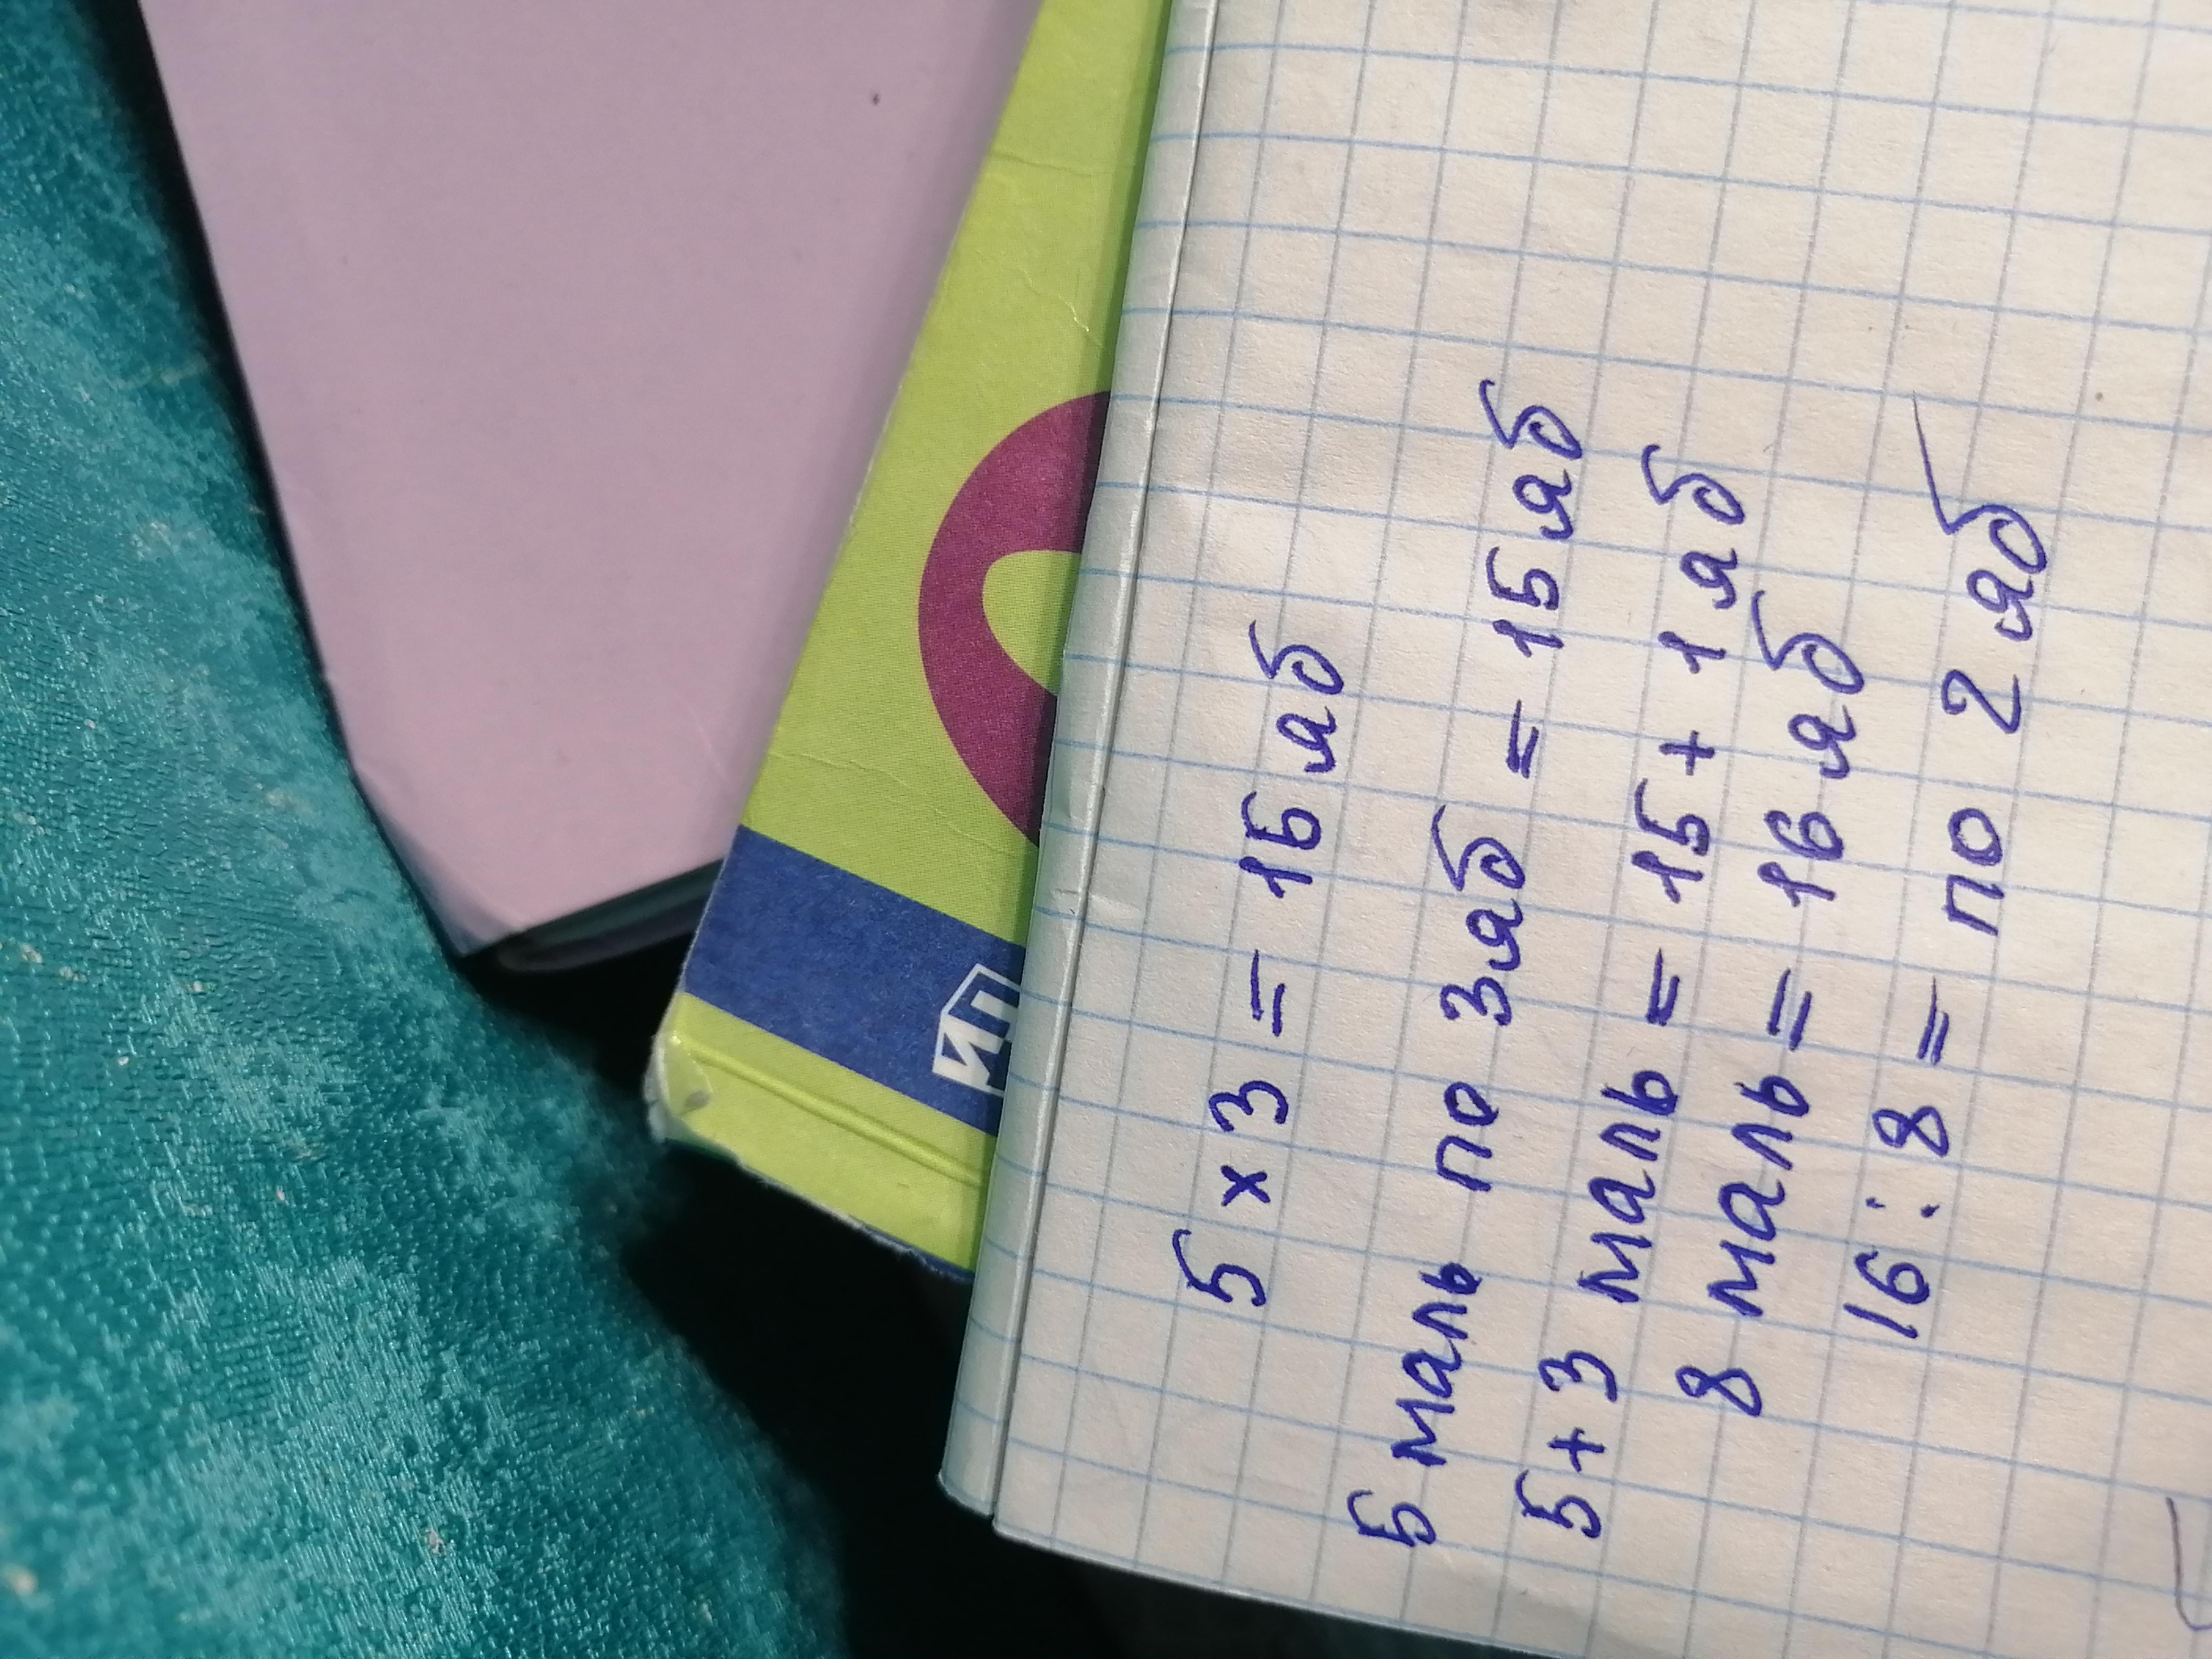 5 × 3 = 15 яб
5 маль по 3 яб = 15 яб
5 + 3 маль = 15 + 1 яб
8 маль = 16 яб
16 : 8 = по 2 яб